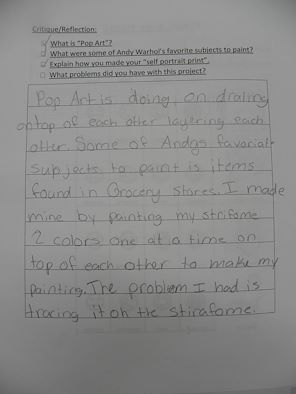 Critique/Reflection:
What is "Pop Art"?
What were some of Andy Warhol's favorite subjects to paint?
Explain how you made your "self portrait print".
What problems did you have with this project?
Pop Art is doing on
ontop of each other layering each
other. Some of Andys favoriate
subjects to paint is items
found in Grocery stores. I made
mine by painting my strifome
2 colors one at a time on
top of each other to make my
painting. The problem I had is
tracing it on the stirafome.